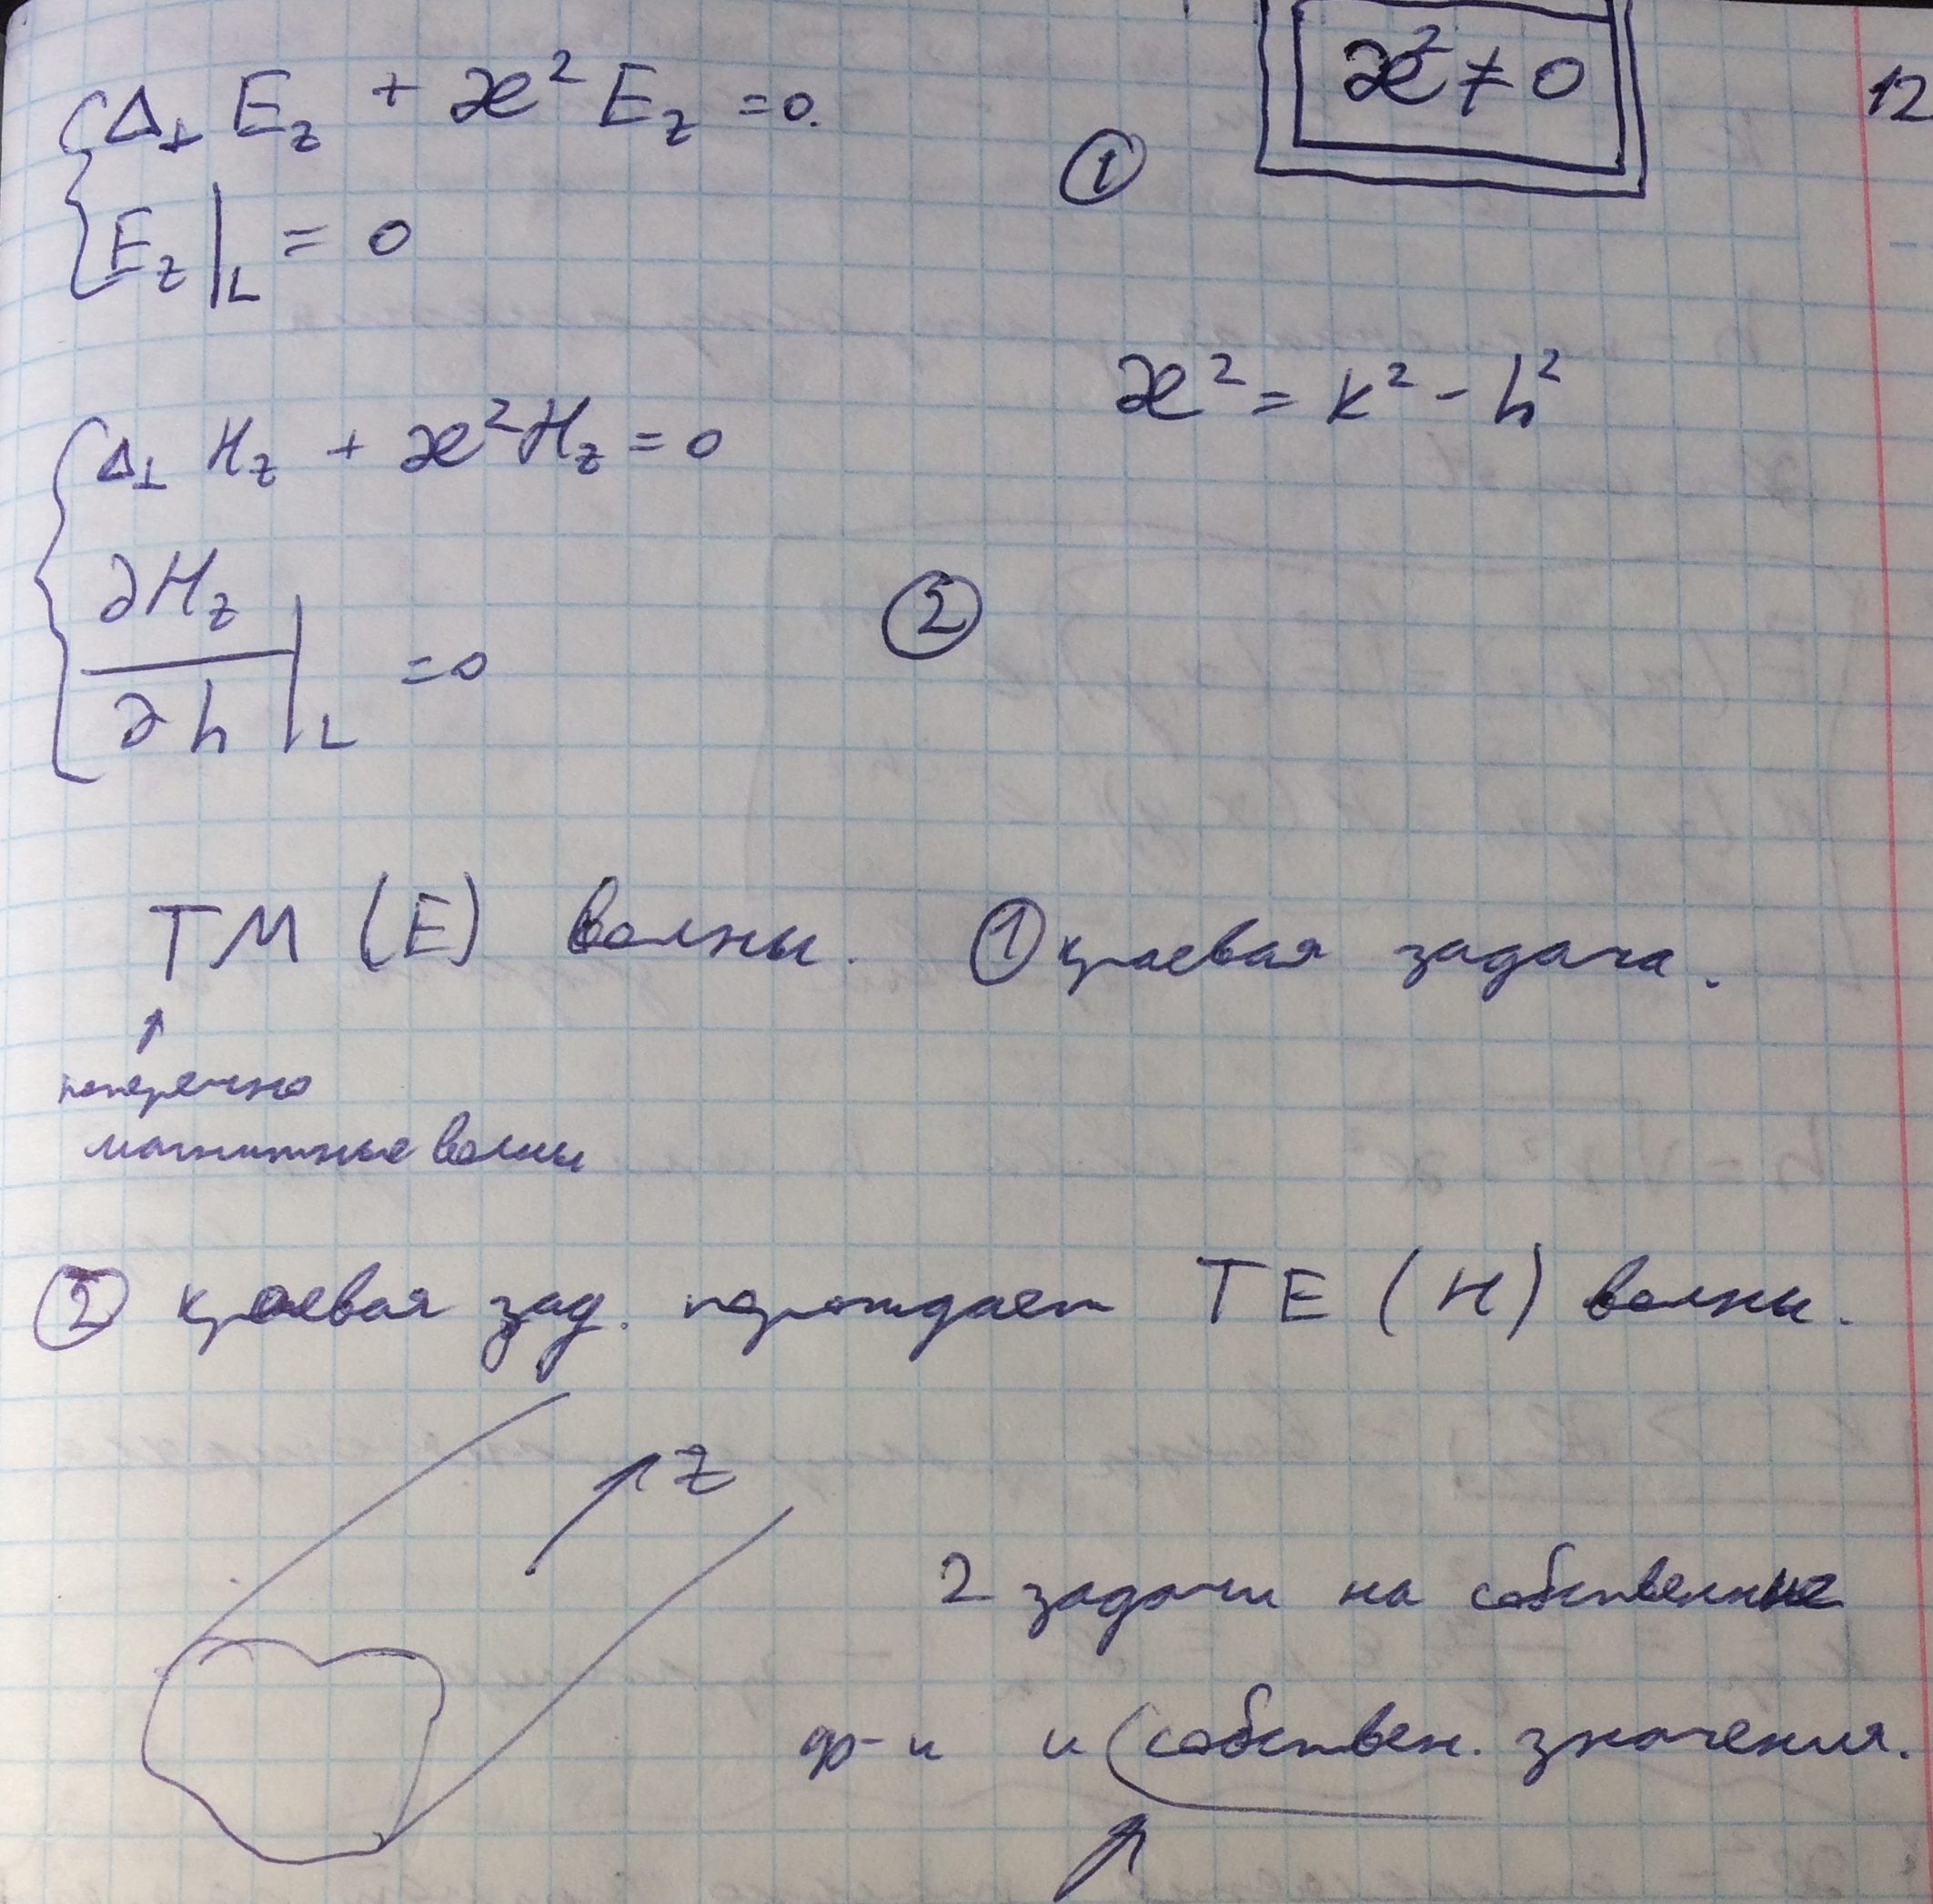 æ² ≠ 0
12
Δ⊥ E_z + æ² E_z = 0.
①
E_z |_L = 0
æ² = k² - h²
Δ⊥ H_z + æ² H_z = 0
②
∂H_z / ∂h |_L = 0
TM (E) волны. ① краевая задача.
↑
поперечно
магнитные волны
② краевая зад. порождает TE (H) волны.
z
2 задачи на собственные
ф-и и (собствен. значения.